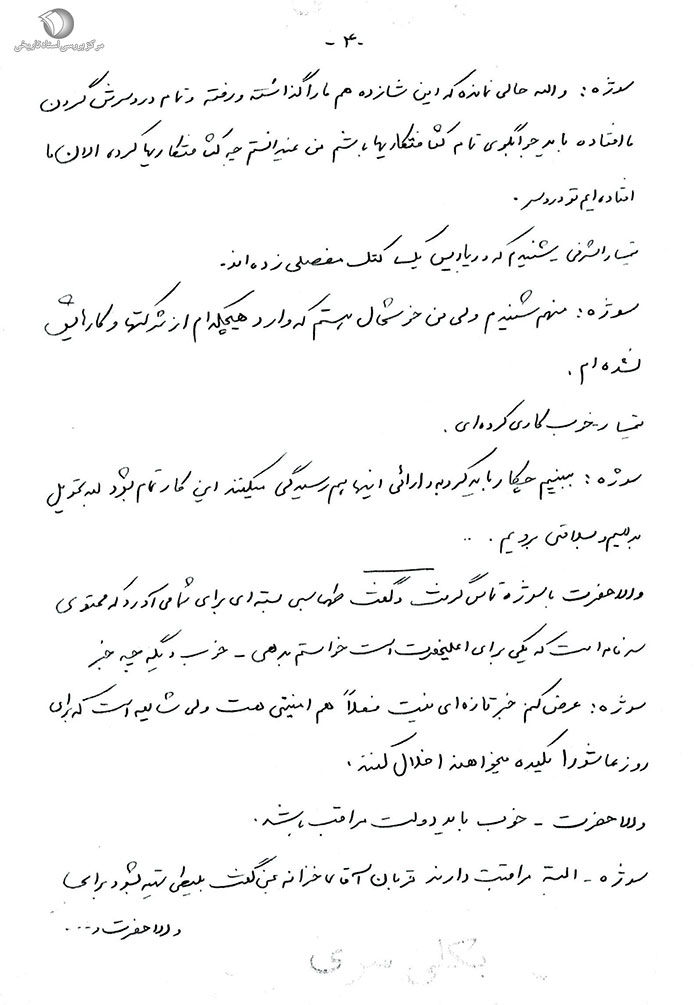 مرکز بررسی اسناد تاریخی
-۴-
سوژه: والله حالی نمانده که این شازده هم ما را گذاشته و رفته و تمام دردسرش گردن
ما افتاده باید جوابگوی تمام کثافتکاریها باشم من نمیدانستم چه کثافتکاریها کرده الان ما
افتاده‌ایم تو دردسر.
تیمسار اشرفی شنیدم که در پاریس یک کتک مفصلی زده‌اند.
سوژه: منهم شنیدم ولی من خوشحال هستم که وارد هیچکدام از شرکتها و کارهایش
نشده‌ام.
تیمسار - خوب کاری کرده‌ای.
سوژه: ببینیم چکار باید کرد به دارائی اینها هم رسیدگی میکنند این کار تمام بشود بعد تحویل
بدهیم و بسلامتی برویم. ..
والاحضرت با سوژه تماس گرفت و گفت طهماسبی بسته‌ای برای شما می‌آورد که محتوی
سه نامه است که یکی برای اعلیحضرت است خواستم بدهی - خوب دیگه چه خبر
سوژه: عرض کنم خبر تازه‌ای نیست فعلاً هم امنیتی هست ولی شایعه است که برای
روز عاشورا یکعده میخواهند اخلال کنند.
والاحضرت - خوب باید دولت مراقب باشد.
سوژه - البته مراقبت دارند قربان آقای خزانه بمن گفت بلیطی تهیه بشود برای
والاحضرت و....
بکلی سری